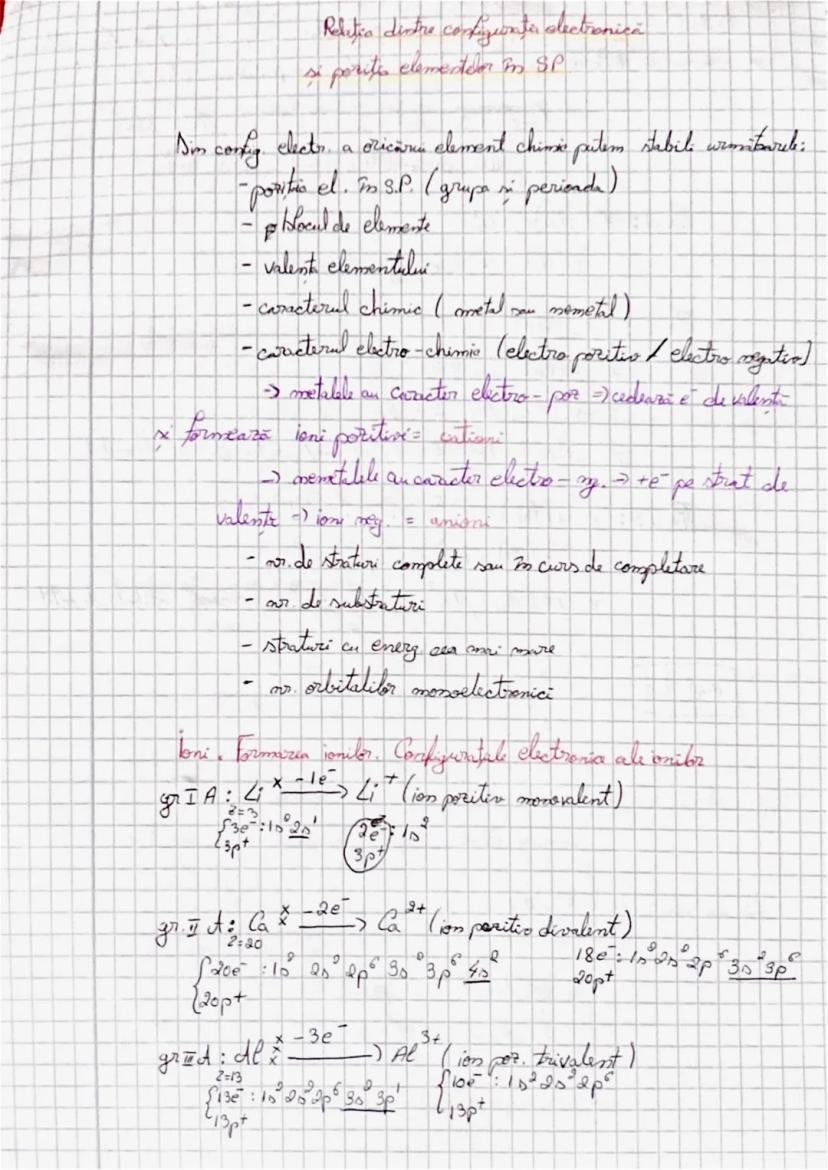 Relația dintre configurația electronică
și poziția elementelor în SP
Din config. electr. a oricărui element chimic putem stabili următoarele:
- poziția el. în S.P. (grupa și perioada)
- blocul de elemente
- valența elementului
- caracterul chimic (metal sau nemetal)
- caracterul electro-chimic (electropozitiv / electronegativ)
→ metalele au caracter electro-poz ⇒ cedează e⁻ de valență
și formează ioni pozitivi = cationi
→ nemetalele au caracter electro-neg. → +e⁻ pe strat de
valență → ioni neg. = anioni
- nr. de straturi complete sau în curs de completare
- nr. de substraturi
- straturi cu energ cea mai mare
- nr. orbitalilor monoelectronici
Ioni. Formarea ionilor. Configurațiile electronice ale ionilor
gr I A : Li ˣ —-1e⁻→ Li⁺ (ion pozitiv monovalent)
Z=3
{3e⁻: 1s² 2s¹ 2e⁻: 1s²
3p⁺ 3p⁺
gr. II A : Ca ˣₓ —-2e⁻→ Ca²⁺ (ion pozitiv divalent)
Z=20
{20e⁻ : 1s² 2s² 2p⁶ 3s² 3p⁶ 4s² 18e⁻ : 1s² 2s² 2p⁶ 3s² 3p⁶
20p⁺ 20p⁺
gr III A : Al ˣₓₓ —-3e⁻→ Al³⁺ (ion poz. trivalent)
Z=13
{13e⁻ : 1s² 2s² 2p⁶ 3s² 3p¹ {10e⁻ : 1s² 2s² 2p⁶
13p⁺ 13p⁺